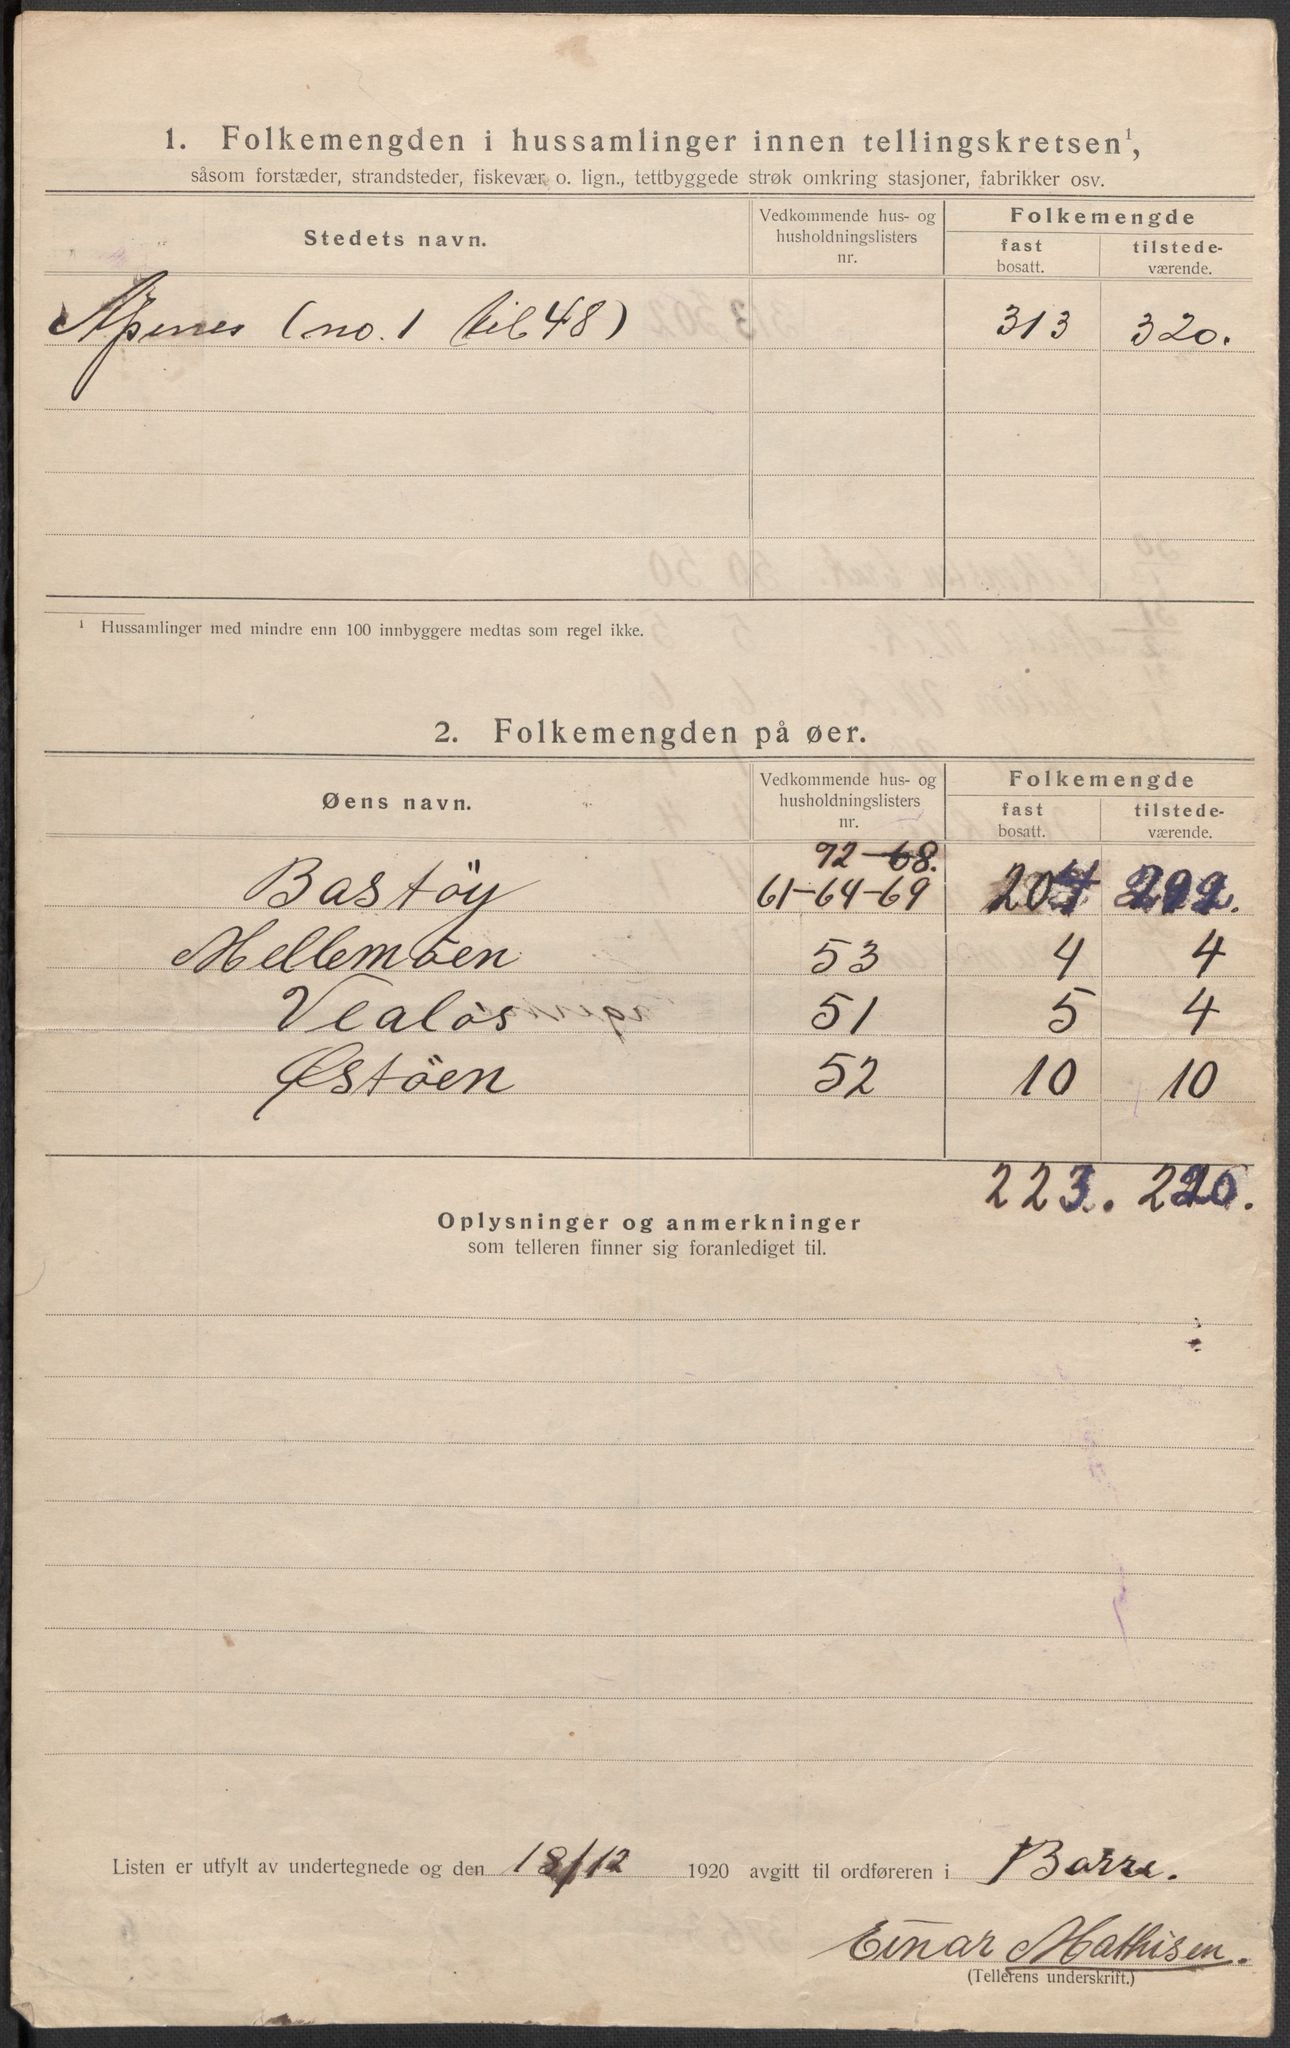 1. Folkemengden i hussamlinger innen tellingskretsen¹,
såsom forstæder, strandsteder, fiskevær o. lign., tettbyggede strøk omkring stasjoner, fabrikker osv.
Stedets navn. Vedkommende hus- og husholdningslisters nr. Folkemengde
fast bosatt. tilstede-værende.
Apenes (no. 1 til 48) 313 320.
¹ Hussamlinger med mindre enn 100 innbyggere medtas som regel ikke.
2. Folkemengden på øer.
Øens navn. Vedkommende hus- og husholdningslisters nr. Folkemengde
fast bosatt. tilstede-værende.
72-68.
Bastöy 61-64-69 204
Mellemöen 53 4 4
Vealös 51 5 4
Østöen 52 10 10
223. 220.
Oplysninger og anmerkninger
som telleren finner sig foranlediget til.
Listen er utfylt av undertegnede og den 18/12 1920 avgitt til ordføreren i Borre.
Einar Mathisen.
(Tellerens underskrift.)